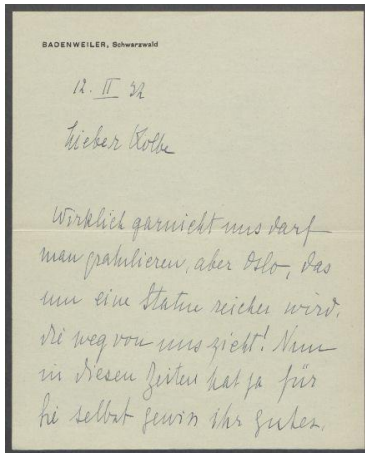 BADENWEILER, Schwarzwald
12. II 32
Lieber Kolbe
Wirklich garnicht uns darf
man gratulieren, aber Oslo, das
um eine Statue reicher wird.
die weg von uns zieht! Nun
in diesen Zeiten hat ja für
Sie selbst gewiss ihr gutes.